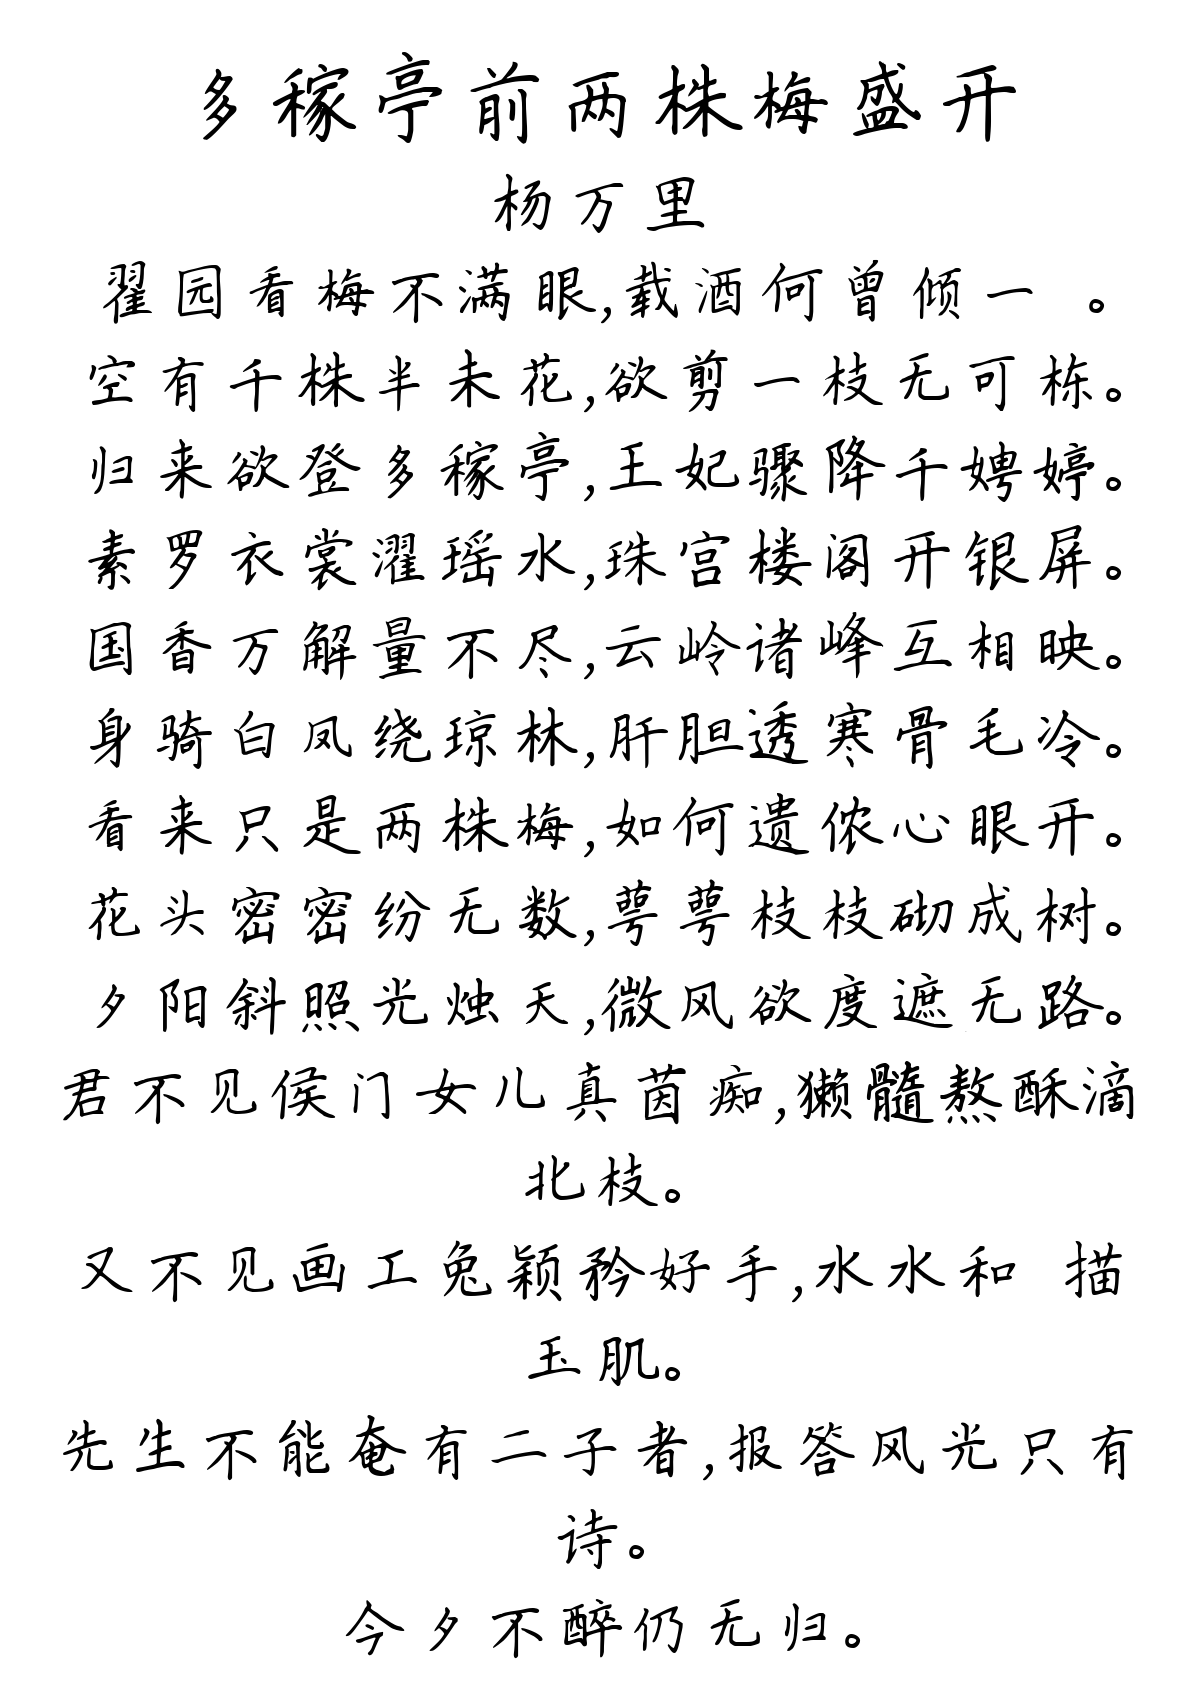 多稼亭前两株梅盛开
杨万里
翟园看梅不满眼,载酒何曾倾一 。
空有千株半未花,欲剪一枝无可栋。
归来欲登多稼亭,王妃骤降千娉婷。
素罗衣裳濯瑶水,珠宫楼阁开银屏。
国香万解量不尽,云岭诸峰互相映。
身骑白凤绕琼林,肝胆透寒骨毛冷。
看来只是两株梅,如何遗侬心眼开。
花头密密纷无数,萼萼枝枝砌成树。
夕阳斜照光烛天,微风欲度遮无路。
君不见侯门女儿真茵痴,獭髓熬酥滴
北枝。
又不见画工兔颖矜好手,水水和 描
玉肌。
先生不能奄有二子者,报答风光只有
诗。
今夕不醉仍无归。